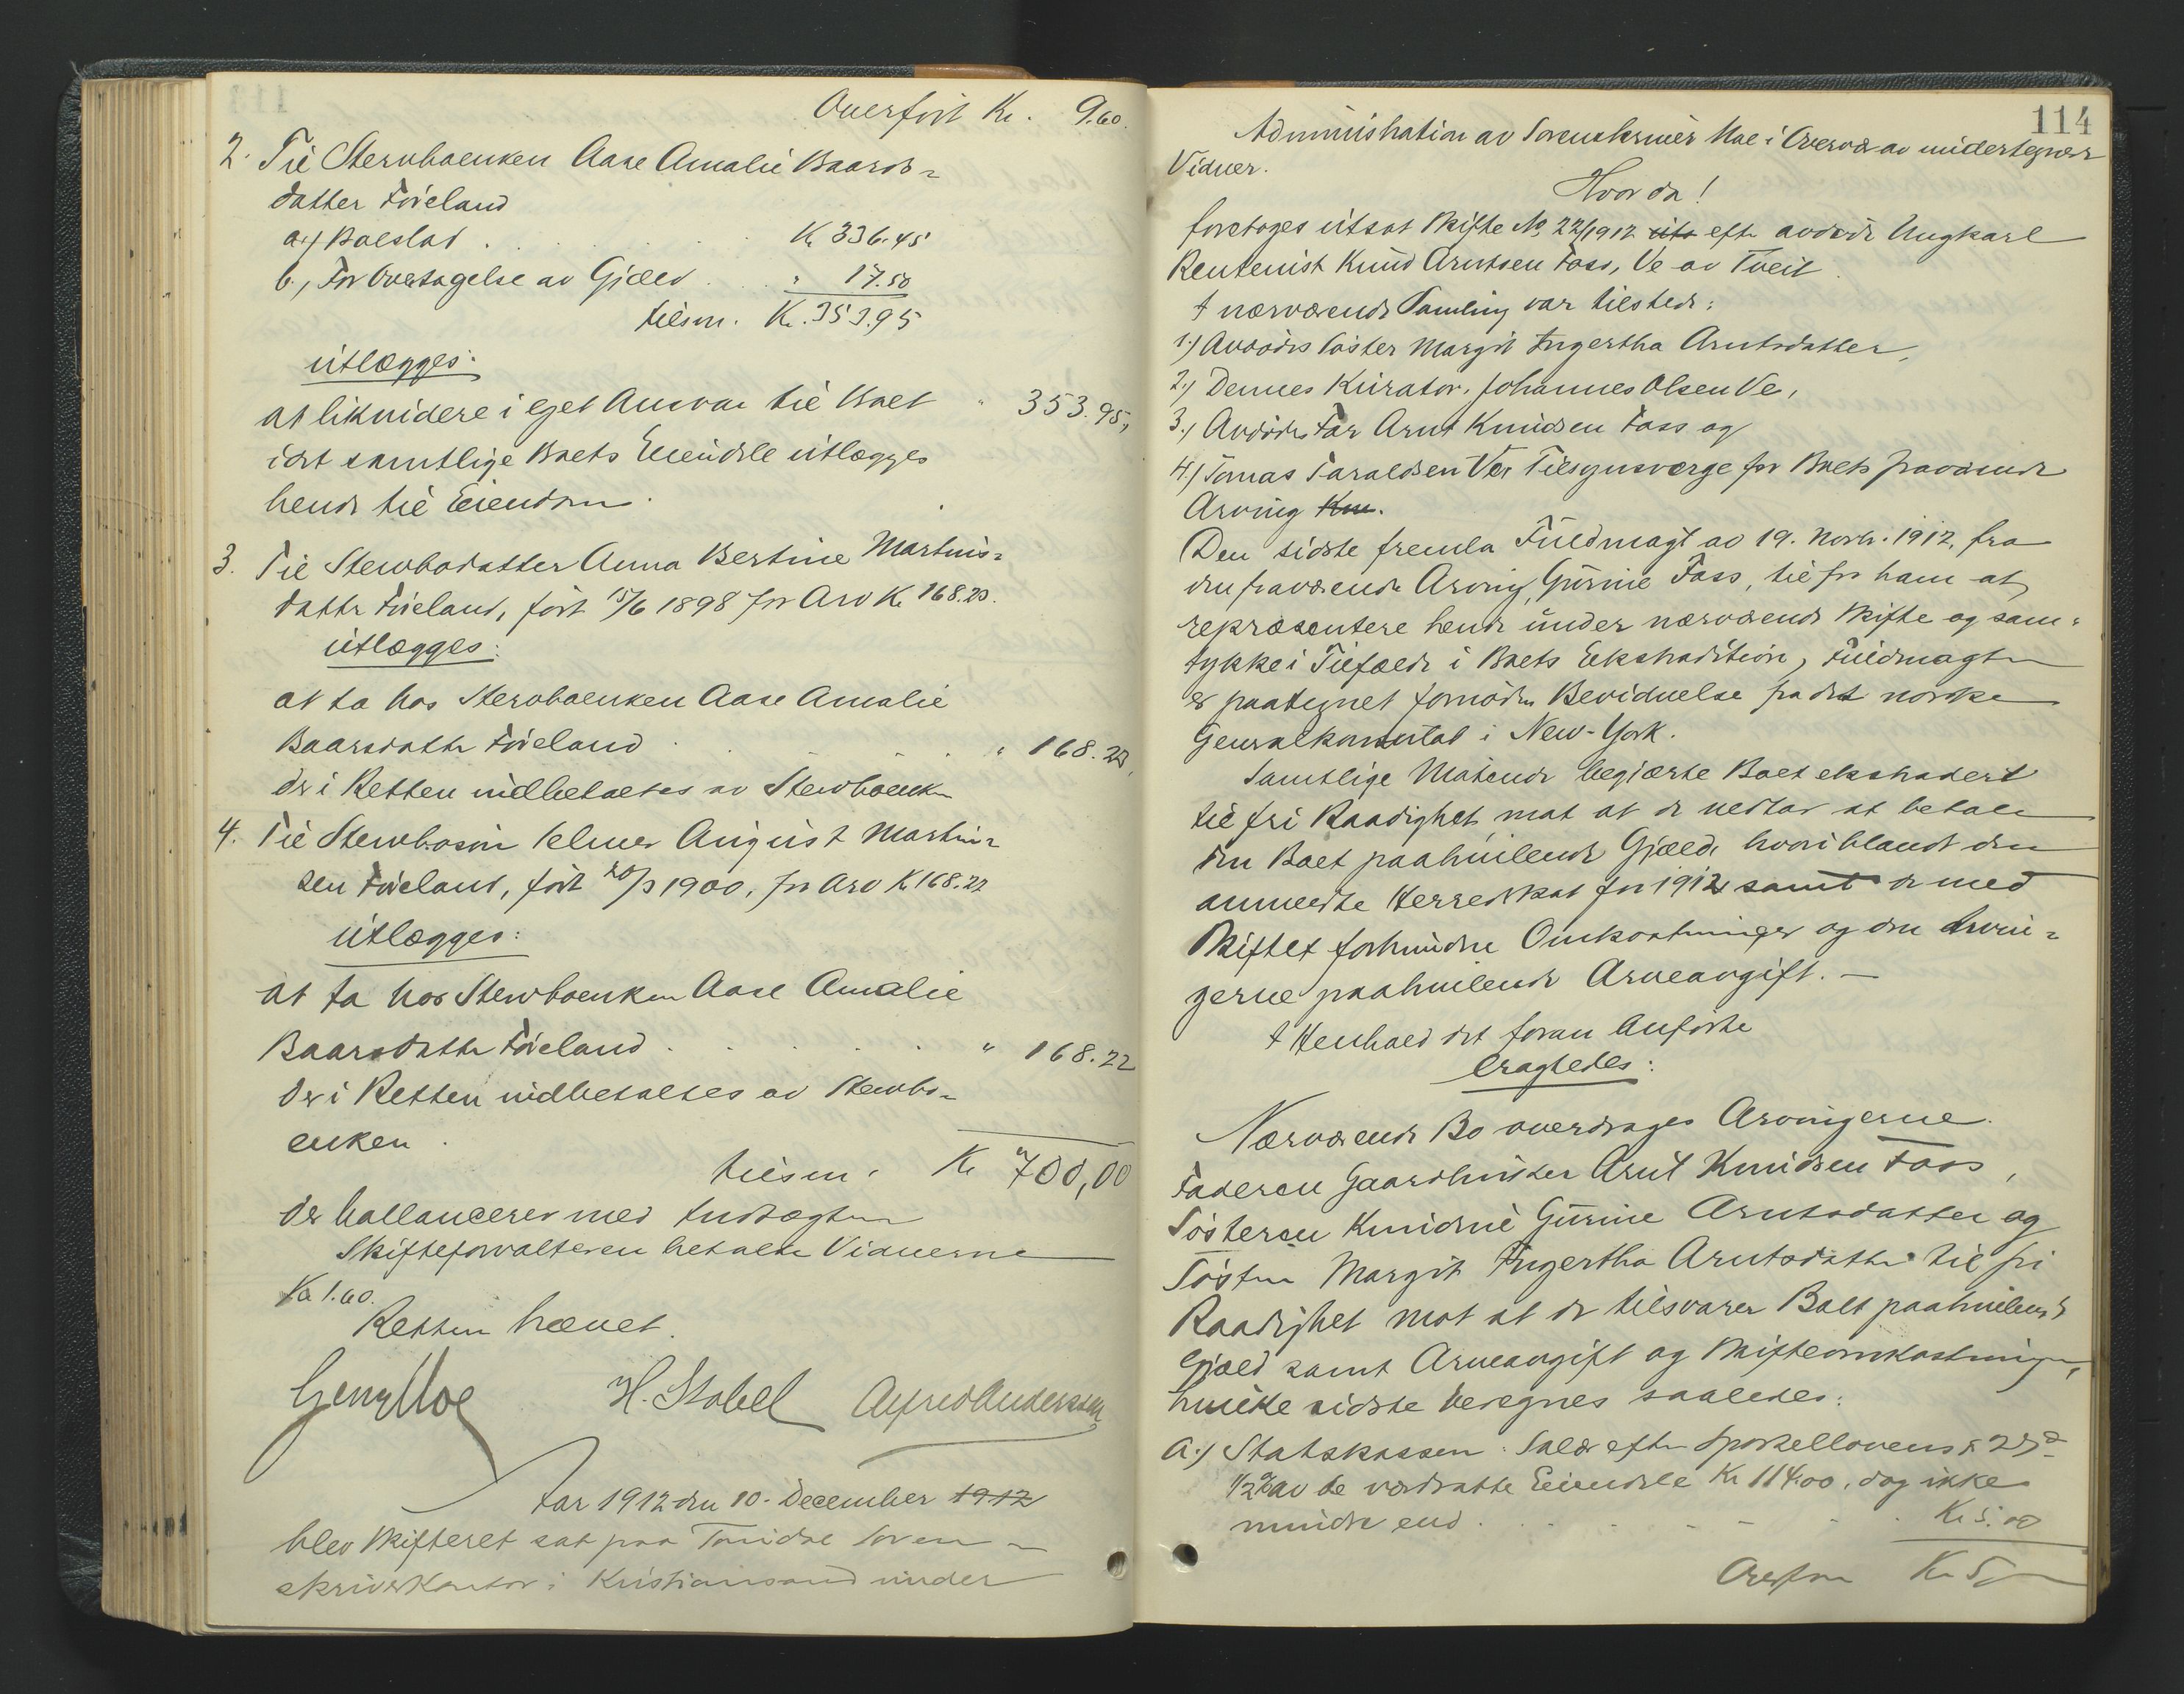 Overført Kr. 9.60.
2. Til Stervboenken Aase Amalie Baards-
datter Føreland
a) Boeslod . . . . K 336.45
b, For Overtagelse av Gjæld . . " 17.50
tilsm. Kr. 353.95
utlægges:
at likvidere i eget Ansvar til Boet " 353.95,
idet samtlige Boets Eiendele utlægges
hende til Eiendom.
3. Til Stervbodatter Anna Bertine Martins-
datter Føreland, født 15/6 1898 for Arv K. 168.23.
utlægges:
at ta hos Stervboenken Aase Amalie
Baarsdatter Føreland . . . " 168.23,
der i Retten indbetaltes av Stervboenken
4. Til Stervbosøn Elmer August Martin-
sen Føreland, født 20/3 1900, for Arv K. 168.22
utlægges:
at ta hos Stervboenken Aase Amalie
Baarsdatter Føreland . . . . . " 168.22
der i Retten indbetaltes av Stervbo-
enken.
tilsm. Kr 700,00
der ballancerer med Indtægten
Skifteforvalteren betalte Vidnerne
Kr 1.60.
Retten hævet.
H. Stabel Alfred Andersen
Aar 1912 den 10. December 1912
blev Skifteret sat paa Torridal Soren-
skriverkontor i Kristiansand under
114
Administration av Sorenskriver Moe i Overvær av undertegnede
Vidner.
Hvorda!
foretoges utsat Skifte No. 22/1912 uts efter avdøde Ungkarl
Rentenist Knud Arntsen Foss, Ve av Tveit.
I nærværende Samling var tilstede:
1.) Avdødes Søster Margit Ingertha Arntsdatter,
2.) Dennes Kurator, Johannes Olsen Ve,
3.) Avdødes Far Arnt Knudsen Foss og
4.) Tomas Taraldsen Ve, Tilsynsværge for Boets fraværende
Arving Knu.
Den sidste fremla Fuldmagt av 19. Novb. 1912, fra
den fraværende Arving, Gurine Foss, til for ham at
repræsentere hende under nærværende Skifte og sam-
tykke i Tilfælde i Boets Ekstradition, Fuldmagten
er paategnet fornøden Bevidnelse fra det norske
Generalkonsulat i New-York.
Samtlige Møtende begjærte Boet ekstradert
til fri Raadighet mot at de vedtar at betale
den Boet paahvilende Gjæld, hvoriblandt den
anmeldte Herredskat for 1912 samt de med
Skiftet forbundne Omkostninger og den Arvin-
gerne paahvilende Arveavgift. —
I Henhold det foran Anførte
eragtedes:
Nærværende Bo overdrages Arvingerne.
Faderen Gaardbruker Arnt Knudsen Foss,
Søsteren Knudine Gurine Arntsdatter og
Søsteren Margit Ingertha Arntsdatter til fri
Raadighet mot at de tilsvarer Boet paahvilende
Gjæld samt Arveavgift og Skifteomkostninger,
hvilke sidste beregnes saaledes:
a.) Statskassen: Salær efter Sportellovens § 25
1/2 % av de verdsatte Eiendele Kr 114.00, dog ikke
mindre end . . . . . Kr 5.00
Overføres Kr 5